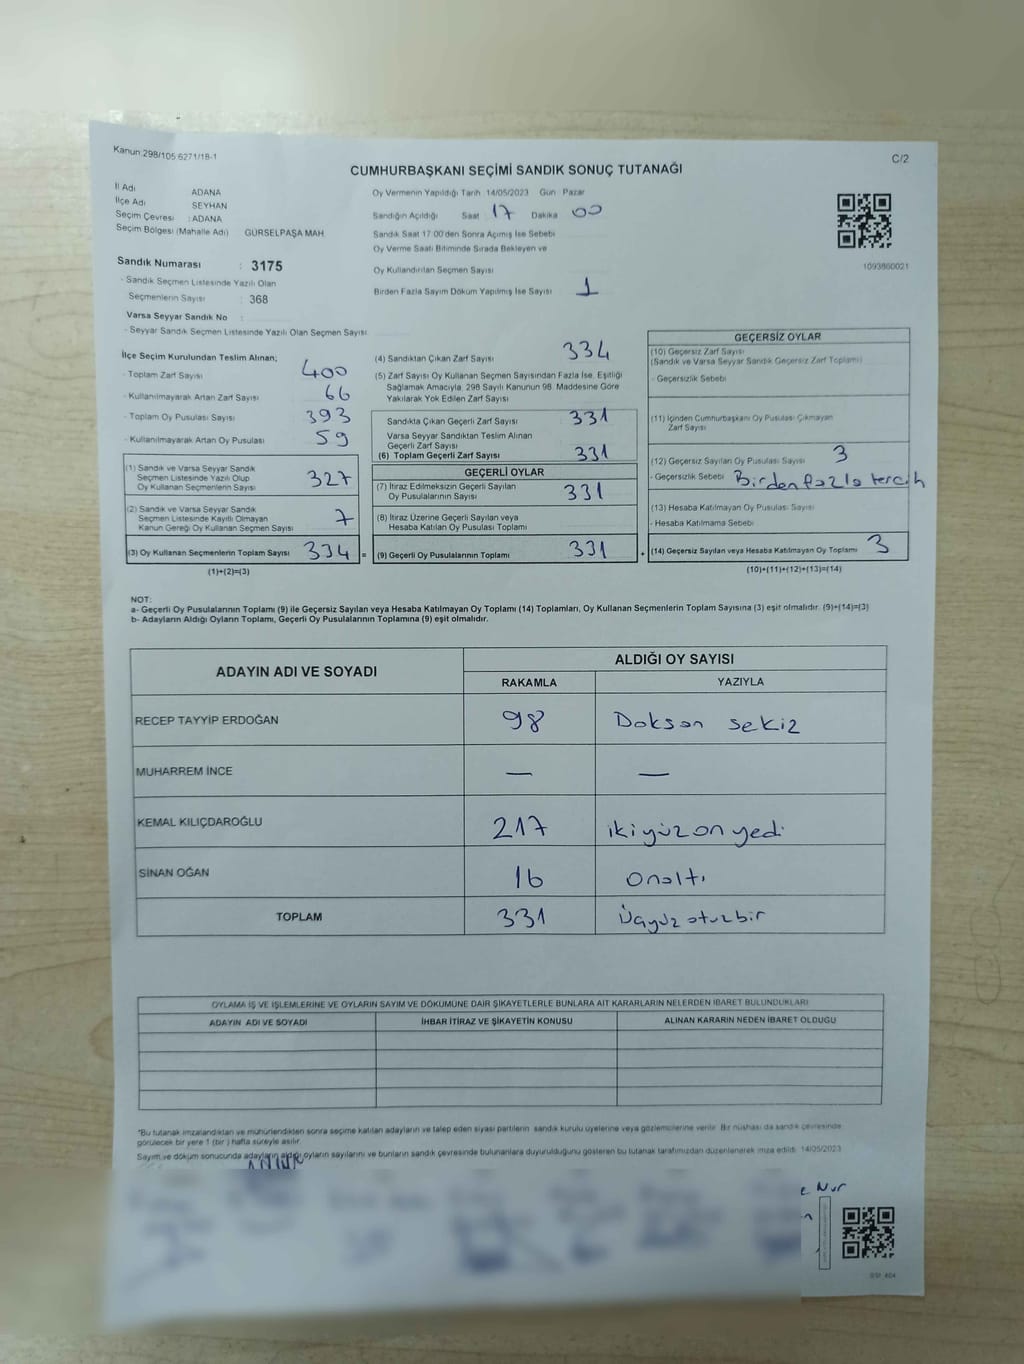 Kanun:298/105 6271/18-1
C/2
CUMHURBAŞKANI SEÇİMİ SANDIK SONUÇ TUTANAĞI
İl Adı ADANA
İlçe Adı SEYHAN
Seçim Çevresi : ADANA
Seçim Bölgesi (Mahalle Adı) GÜRSELPAŞA MAH
Sandık Numarası : 3175
- Sandık Seçmen Listesinde Yazılı Olan
Seçmenlerin Sayısı : 368
Varsa Seyyar Sandık No :
- Seyyar Sandık Seçmen Listesinde Yazılı Olan Seçmen Sayısı
Oy Vermenin Yapıldığı Tarih 14/05/2023 Gün Pazar
Sandığın Açıldığı Saat 17 Dakika 00
Sandık Saat 17:00'den Sonra Açımış İse Sebebi
Oy Verme Saati Bitiminde Sırada Bekleyen ve
Oy Kullandırılan Seçmen Sayısı
Birden Fazla Sayım Döküm Yapılmış İse Sayısı 1
1093860021
İlçe Seçim Kurulundan Teslim Alınan;
- Toplam Zarf Sayısı 400
- Kullanılmayarak Artan Zarf Sayısı 66
- Toplam Oy Pusulası Sayısı 393
- Kullanılmayarak Artan Oy Pusulası 59
(1) Sandık ve Varsa Seyyar Sandık
Seçmen Listesinde Yazılı Olup
Oy Kullanan Seçmenlerin Sayısı 327
(2) Sandık ve Varsa Seyyar Sandık
Seçmen Listesinde Kayıtlı Olmayan
Kanun Gereği Oy Kullanan Seçmen Sayısı 7
(3) Oy Kullanan Seçmenlerin Toplam Sayısı 334 =
(1)+(2)=(3)
(4) Sandıktan Çıkan Zarf Sayısı 334
(5) Zarf Sayısı Oy Kullanan Seçmen Sayısından Fazla İse, Eşitliği
Sağlamak Amacıyla, 298 Sayılı Kanunun 98. Maddesine Göre
Yakılarak Yok Edilen Zarf Sayısı
Sandıkta Çıkan Geçerli Zarf Sayısı 331
Varsa Seyyar Sandıktan Teslim Alınan
Geçerli Zarf Sayısı
(6) Toplam Geçerli Zarf Sayısı 331
GEÇERLİ OYLAR
(7) İtiraz Edilmeksizin Geçerli Sayılan
Oy Pusulalarının Sayısı 331
(8) İtiraz Üzerine Geçerli Sayılan veya
Hesaba Katılan Oy Pusulası Toplamı
(9) Geçerli Oy Pusulalarının Toplamı 331 +
GEÇERSİZ OYLAR
(10) Geçersiz Zarf Sayısı
(Sandık ve Varsa Seyyar Sandık Geçersiz Zarf Toplamı)
- Geçersizlik Sebebi
(11) İçinden Cumhurbaşkanı Oy Pusulası Çıkmayan
Zarf Sayısı
(12) Geçersiz Sayılan Oy Pusulası Sayısı 3
- Geçersizlik Sebebi Birden fazla tercih
(13) Hesaba Katılmayan Oy Pusulası Sayısı
- Hesaba Katılmama Sebebi
(14) Geçersiz Sayılan veya Hesaba Katılmayan Oy Toplamı 3
(10)+(11)+(12)+(13)=(14)
NOT:
a- Geçerli Oy Pusulalarının Toplamı (9) ile Geçersiz Sayılan veya Hesaba Katılmayan Oy Toplamı (14) Toplamları, Oy Kullanan Seçmenlerin Toplam Sayısına (3) eşit olmalıdır. (9)+(14)=(3)
b- Adayların Aldığı Oyların Toplamı, Geçerli Oy Pusulalarının Toplamına (9) eşit olmalıdır.
ADAYIN ADI VE SOYADI ALDIĞI OY SAYISI
RAKAMLA YAZIYLA
RECEP TAYYİP ERDOĞAN 98 Doksan sekiz
MUHARREM İNCE — —
KEMAL KILIÇDAROĞLU 217 ikiyüz on yedi
SİNAN OĞAN 16 Onaltı
TOPLAM 331 Üçyüz otuzbir
OYLAMA İŞ VE İŞLEMLERİNE VE OYLARIN SAYIM VE DÖKÜMÜNE DAİR ŞİKAYETLERLE BUNLARA AİT KARARLARIN NELERDEN İBARET BULUNDUKLARI
ADAYIN ADI VE SOYADI İHBAR İTİRAZ VE ŞİKAYETİN KONUSU ALINAN KARARIN NEDEN İBARET OLDUĞU
*Bu tutanak imzalandıktan ve mühürlendikten sonra seçime katılan adayların ve talep eden siyasi partilerin sandık kurulu üyelerine veya gözlemcilerine verilir. Bir nüshası da sandık çevresinde
görülecek bir yere 1 (bir) hafta süreyle asılır.
Sayım ve döküm sonucunda adayların aldığı oyların sayılarını ve bunların sandık çevresinde bulunanlara duyurulduğunu gösteren bu tutanak tarafımızdan düzenlenerek imza edildi. 14/05/2023
Nur